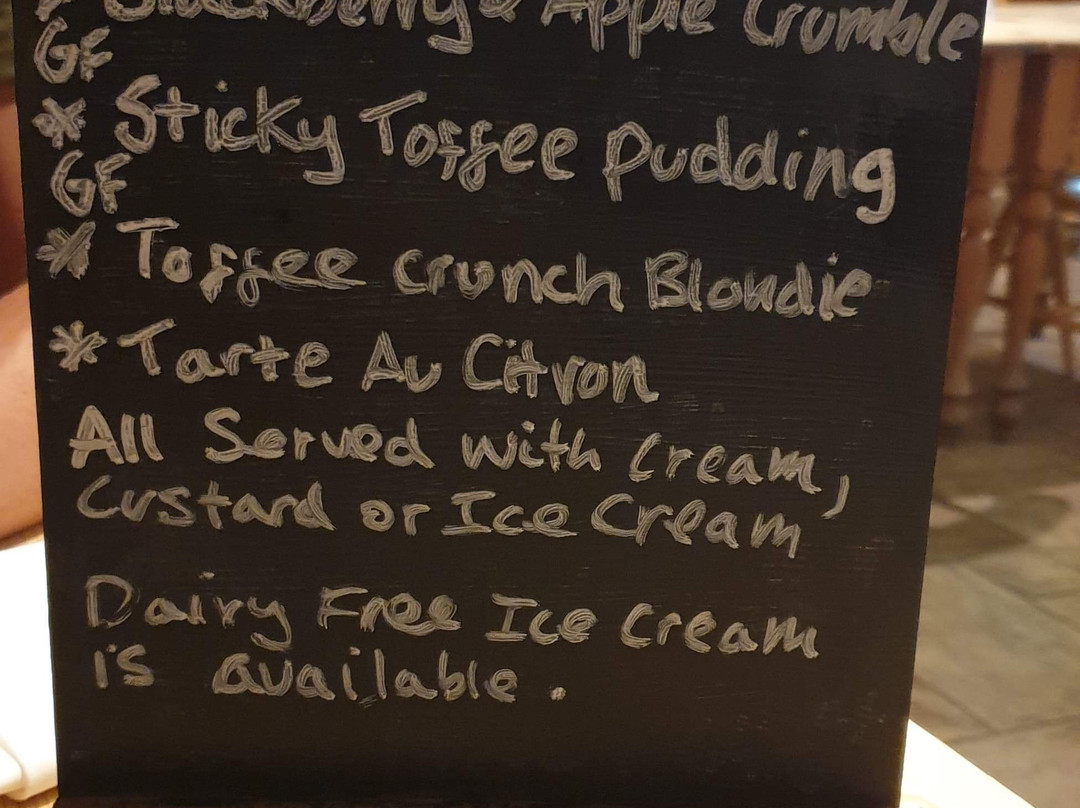 * Blackberry & Apple Crumble
GF
* Sticky Toffee Pudding
GF
* Toffee crunch Blondie
* Tarte Au Citron
All Served with Cream,
Custard or Ice Cream
Dairy Free Ice Cream
is available.